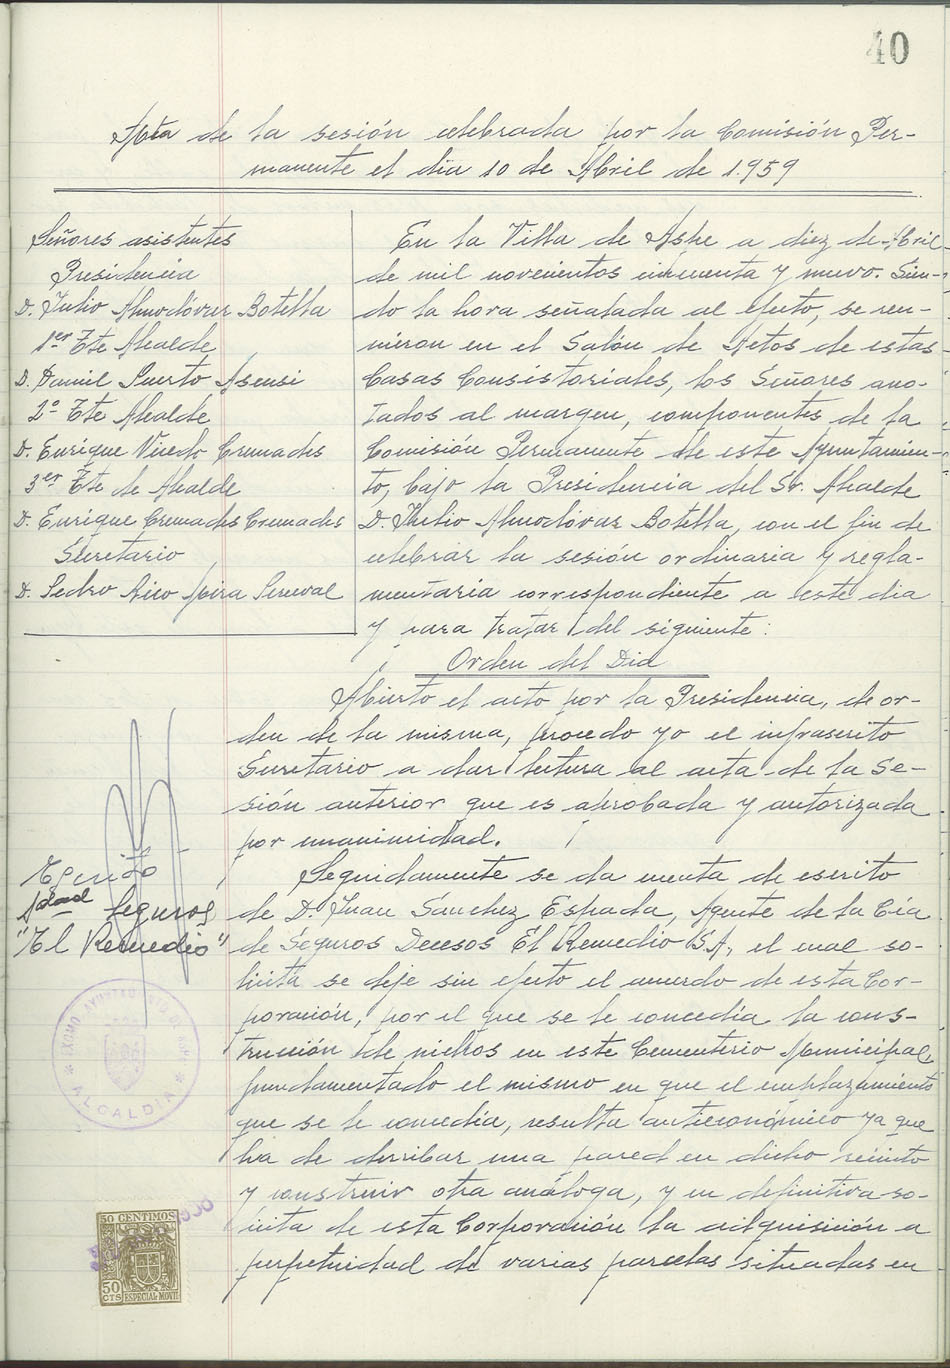 40
Acta de la sesión celebrada por la Comisión Per-
manente el dia 10 de Abril de 1.959
Señores asistentes
Presidencia
D. Julio Almodóvar Botella
1er Tte Alcalde
D. Daniel Puerto Asensi
2º Tte Alcalde
D. Enrique Vicedo Cremades
3er Tte de Alcalde
D. Enrique Cremades Cremades
Secretario
D. Pedro Rico Mira Perceval
En la Villa de Aspe a diez de Abril
de mil novecientos cincuenta y nuevo. Sien-
do la hora señalada al efecto, se reu-
nieron en el Salón de Actos de estas
Casas Consistoriales, los Señores ano-
tados al margen, componentes de la
Comisión Permanente de este Ayuntamien-
to, bajo la Presidencia del Sr. Alcalde
D. Julio Almodóvar Botella, con el fin de
celebrar la sesión ordinaria y regla-
mentaria correspondiente a este dia
y para tratar del siguiente:
Orden del Dia
Abierto el acto por la Presidencia, de or-
den de la misma, procedo yo el infrascrito
Secretario a dar lectura al acta de la Se-
sión anterior que es aprobada y autorizada
por unanimidad.
Escrito
Seguros
"El Remedio"
Seguidamente se da cuenta de escrito
de D. Juan Sánchez Espada, Agente de la Cia
de Seguros Decesos El Remedio S.A., el cual so-
licita se deje sin efecto el acuerdo de esta Cor-
poración, por el que se le concedía la cons-
trucción de nichos en este Cementerio Municipal,
fundamentado el mismo en que el emplazamiento
que se le concedía, resulta antieconómico ya que
ha de derribar una pared en dicho recinto
y construir otra análoga, y en definitiva so-
licita de esta Corporación la adquisición a
perpetuidad de varias parcelas situadas en
ALCALDIA
50 CENTIMOS
50
CTS
ESPECIAL MOVIL